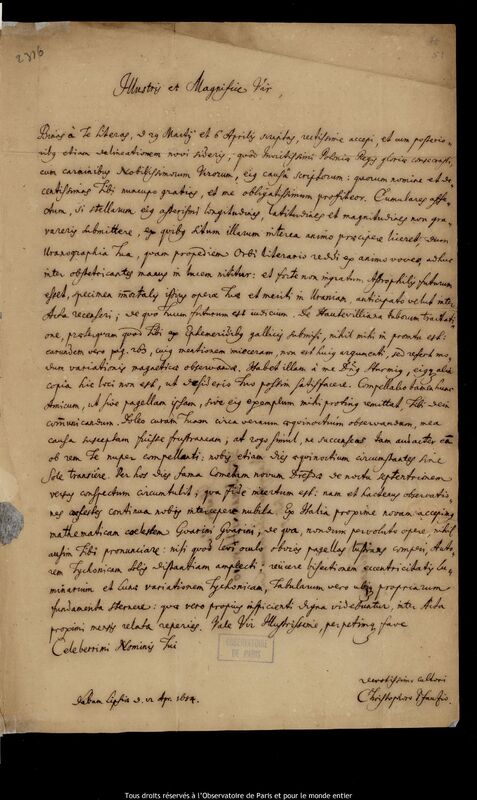 2376
51
Illustris et Magnifice Vir
Binas à Te literas, d 29 Martij et 6 Aprilis scriptas, rectissime accepi, et cum posterio-
ribus etiam delineationem novi sideris, quod Invictissimi Poloniæ Regis gloriæ consecrasti,
cum carminibus Nobilissimorum Virorum, ejus causa scriptorum: quorum nomine et de-
centissimas Tibi nuncupo gratias, et me obligatissimum profiteor. Cumulares affe-
ctum, si stellarum ejus asterismi longitudines, latitudines et magnitudines non gra-
vareris submittere, ex quibus situm illarum interea animo præcipere liceret, dum
Uranographia Tua, quam propediem Orbi literario reddi ex animo voveo, adhuc
inter obstetricantes manus in lucem nititur: et forte non ingratum Astrophilis futurum
esset, specimen immortalis istius operæ Tuæ et meriti in Uraniam, anticipato velut inter
Acta recenseri; de quo Tuum futurum est judicium. De Hautevilliana tuborum tractati-
one, præterquam quod Tibi ex Ephemeridibus gallicis submisi, nihil mihi in promtu est:
earundem vero pag. 283, cujus mentionem injeceram, non est hujus argumenti, sed refert mo-
dum variationis magneticæ observandæ. Habet illam à me Dn. Sturmius, ejusque alia
copia hic loci non est, ut desiderio Tuo possim satisfacere. Compellabo tamen hunc
Amicum, ut sive pagellam ipsam, sive ejus exemplum mihi protinus remittat, Tibi dein
communicandum. Doleo curam Tuam circa verum æquinoctium observandum, mea
causa susceptam fuisse frustraneam; at rogo simul, ne succenseas tam audacter eam
ob rem Te nuper compellanti: nobis etiam dies æquinoctium circumstantes sine
Sole transiere. Per hos dies fama Cometam novum Dresdæ de nocte septentrionem
versus conspectum circumtulit; qua fide incertum est: nam et hactenus observatio-
nes cælestes continua nobis intercepere nubila. Ex Italia proxime novam accepimus
mathematicam cælestem Guarini Guarini, de qua, nondum pervoluto opere, nihil
ausim Tibi pronunciare: nisi quod levi oculo obvias pagellas lustrans comperi, Auto-
rem Tychonicam Solis distantiam amplecti, reiicere bisectionem eccentricitatis lu-
minarium et Lunæ variationem Tychonicam, Tabularum vero ubique propriarum
fundamenta sternere: quæ vero propius inspicienti digna videbuntur, inter Acta
proximi mensis relata reperies. Vale Vir Illustrissime, perpetimque fave
Celeberrimi Nominis Tui
devotissimo cultori
Christophoro Pfautzio.
dabam Lipsiæ d. 12 Apr. 1684.
OBSERVATOIRE
DE PARIS
Tous droits réservés à l'Observatoire de Paris et pour le monde entier